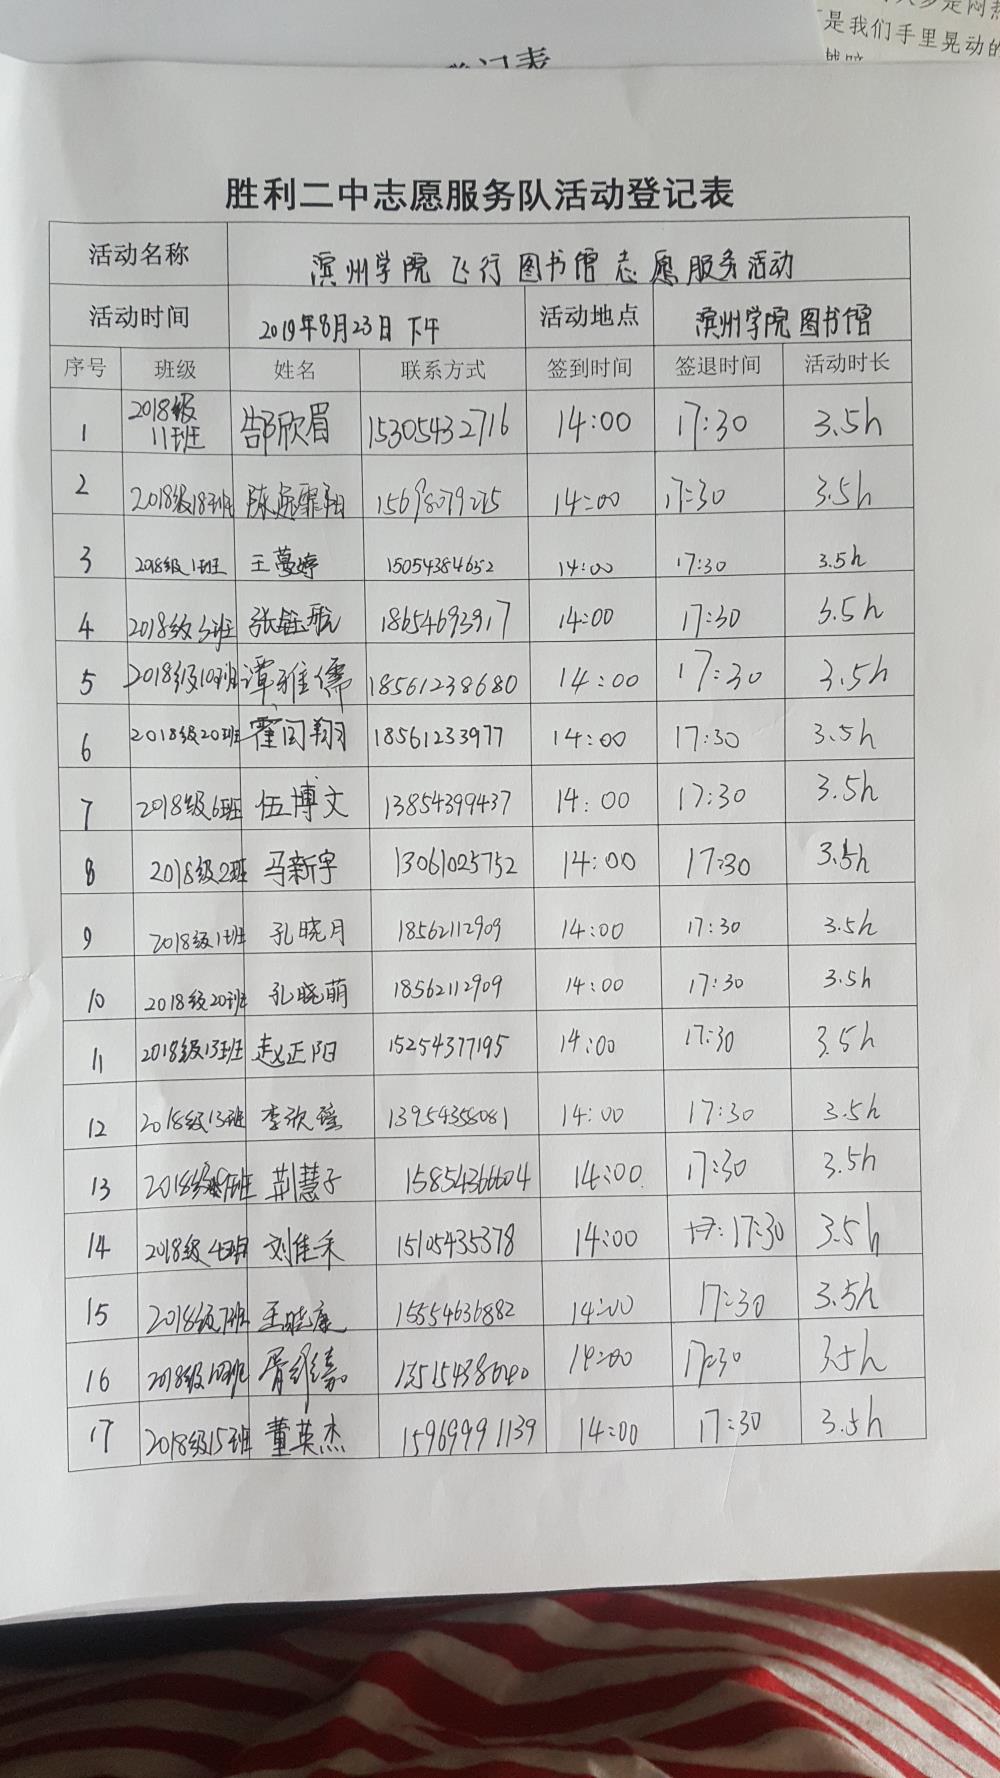 是我们手里晃动的
胜利二中志愿服务队活动登记表
活动名称 滨州学院飞行图书馆志愿服务活动
活动时间 2019年8月23日下午 活动地点 滨州学院图书馆
序号 班级 姓名 联系方式 签到时间 签退时间 活动时长
1 2018级11班 郜欣眉 15305432716 14:00 17:30 3.5h
2 2018级18班 14:00 17:30 3.5h
3 2018级1班 王蔓婷 15054384652 14:00 17:30 3.5h
4 2018级3班 张钰航 18654693917 14:00 17:30 3.5h
5 2018级10班 谭雅儒 18561238680 14:00 17:30 3.5h
6 2018级20班 霍闰翔 18561233977 14:00 17:30 3.5h
7 2018级6班 伍博文 13854399437 14:00 17:30 3.5h
8 2018级2班 马新宇 13061025752 14:00 17:30 3.5h
9 2018级1班 孔晓月 18562112909 14:00 17:30 3.5h
10 2018级20班 孔晓萌 18562112909 14:00 17:30 3.5h
11 2018级13班 赵正阳 15254377195 14:00 17:30 3.5h
12 2018级13班 李欣瑶 13954358081 14:00 17:30 3.5h
13 荆慧子 15854366604 14:00 17:30 3.5h
14 2018级4班 刘佳禾 15105435378 14:00 17:30 3.5h
15 2018级7班 王晓康 15554636882 14:00 17:30 3.5h
16 2018级10班 14:00 17:30 3.5h
17 2018级15班 董英杰 15969991139 14:00 17:30 3.5h